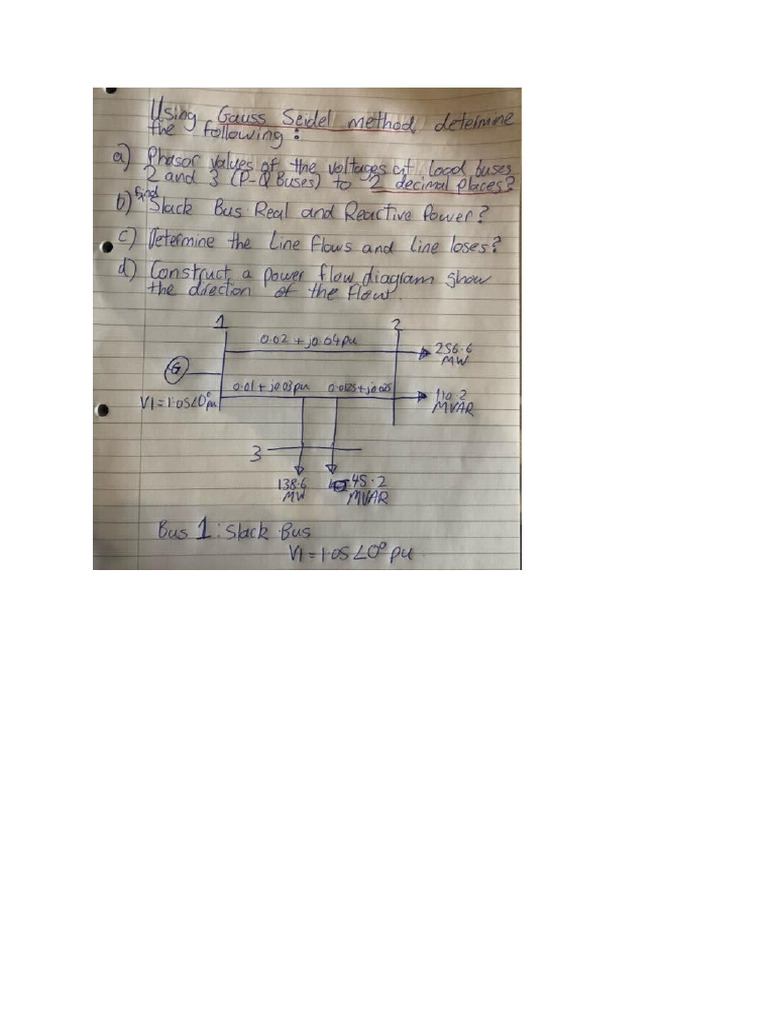 Using Gauss Seidel method, determine
the following:
a) Phasor values of the voltages at load buses
2 and 3 (P-Q Buses) to 2 decimal places?
b) Find Slack Bus Real and Reactive Power?
c) Determine the Line flows and line loses?
d) Construct a power flow diagram show
the direction of the flow.
1
2
0.02 + j0.04pu
256.6
MW
G
0.01 + j0.03pu
0.0125 + j0.025
V1 = 1.05∠0° pu
110.2
MVAR
3
138.6
MW
45.2
MVAR
Bus 1: Slack Bus
V1 = 1.05 ∠0° pu